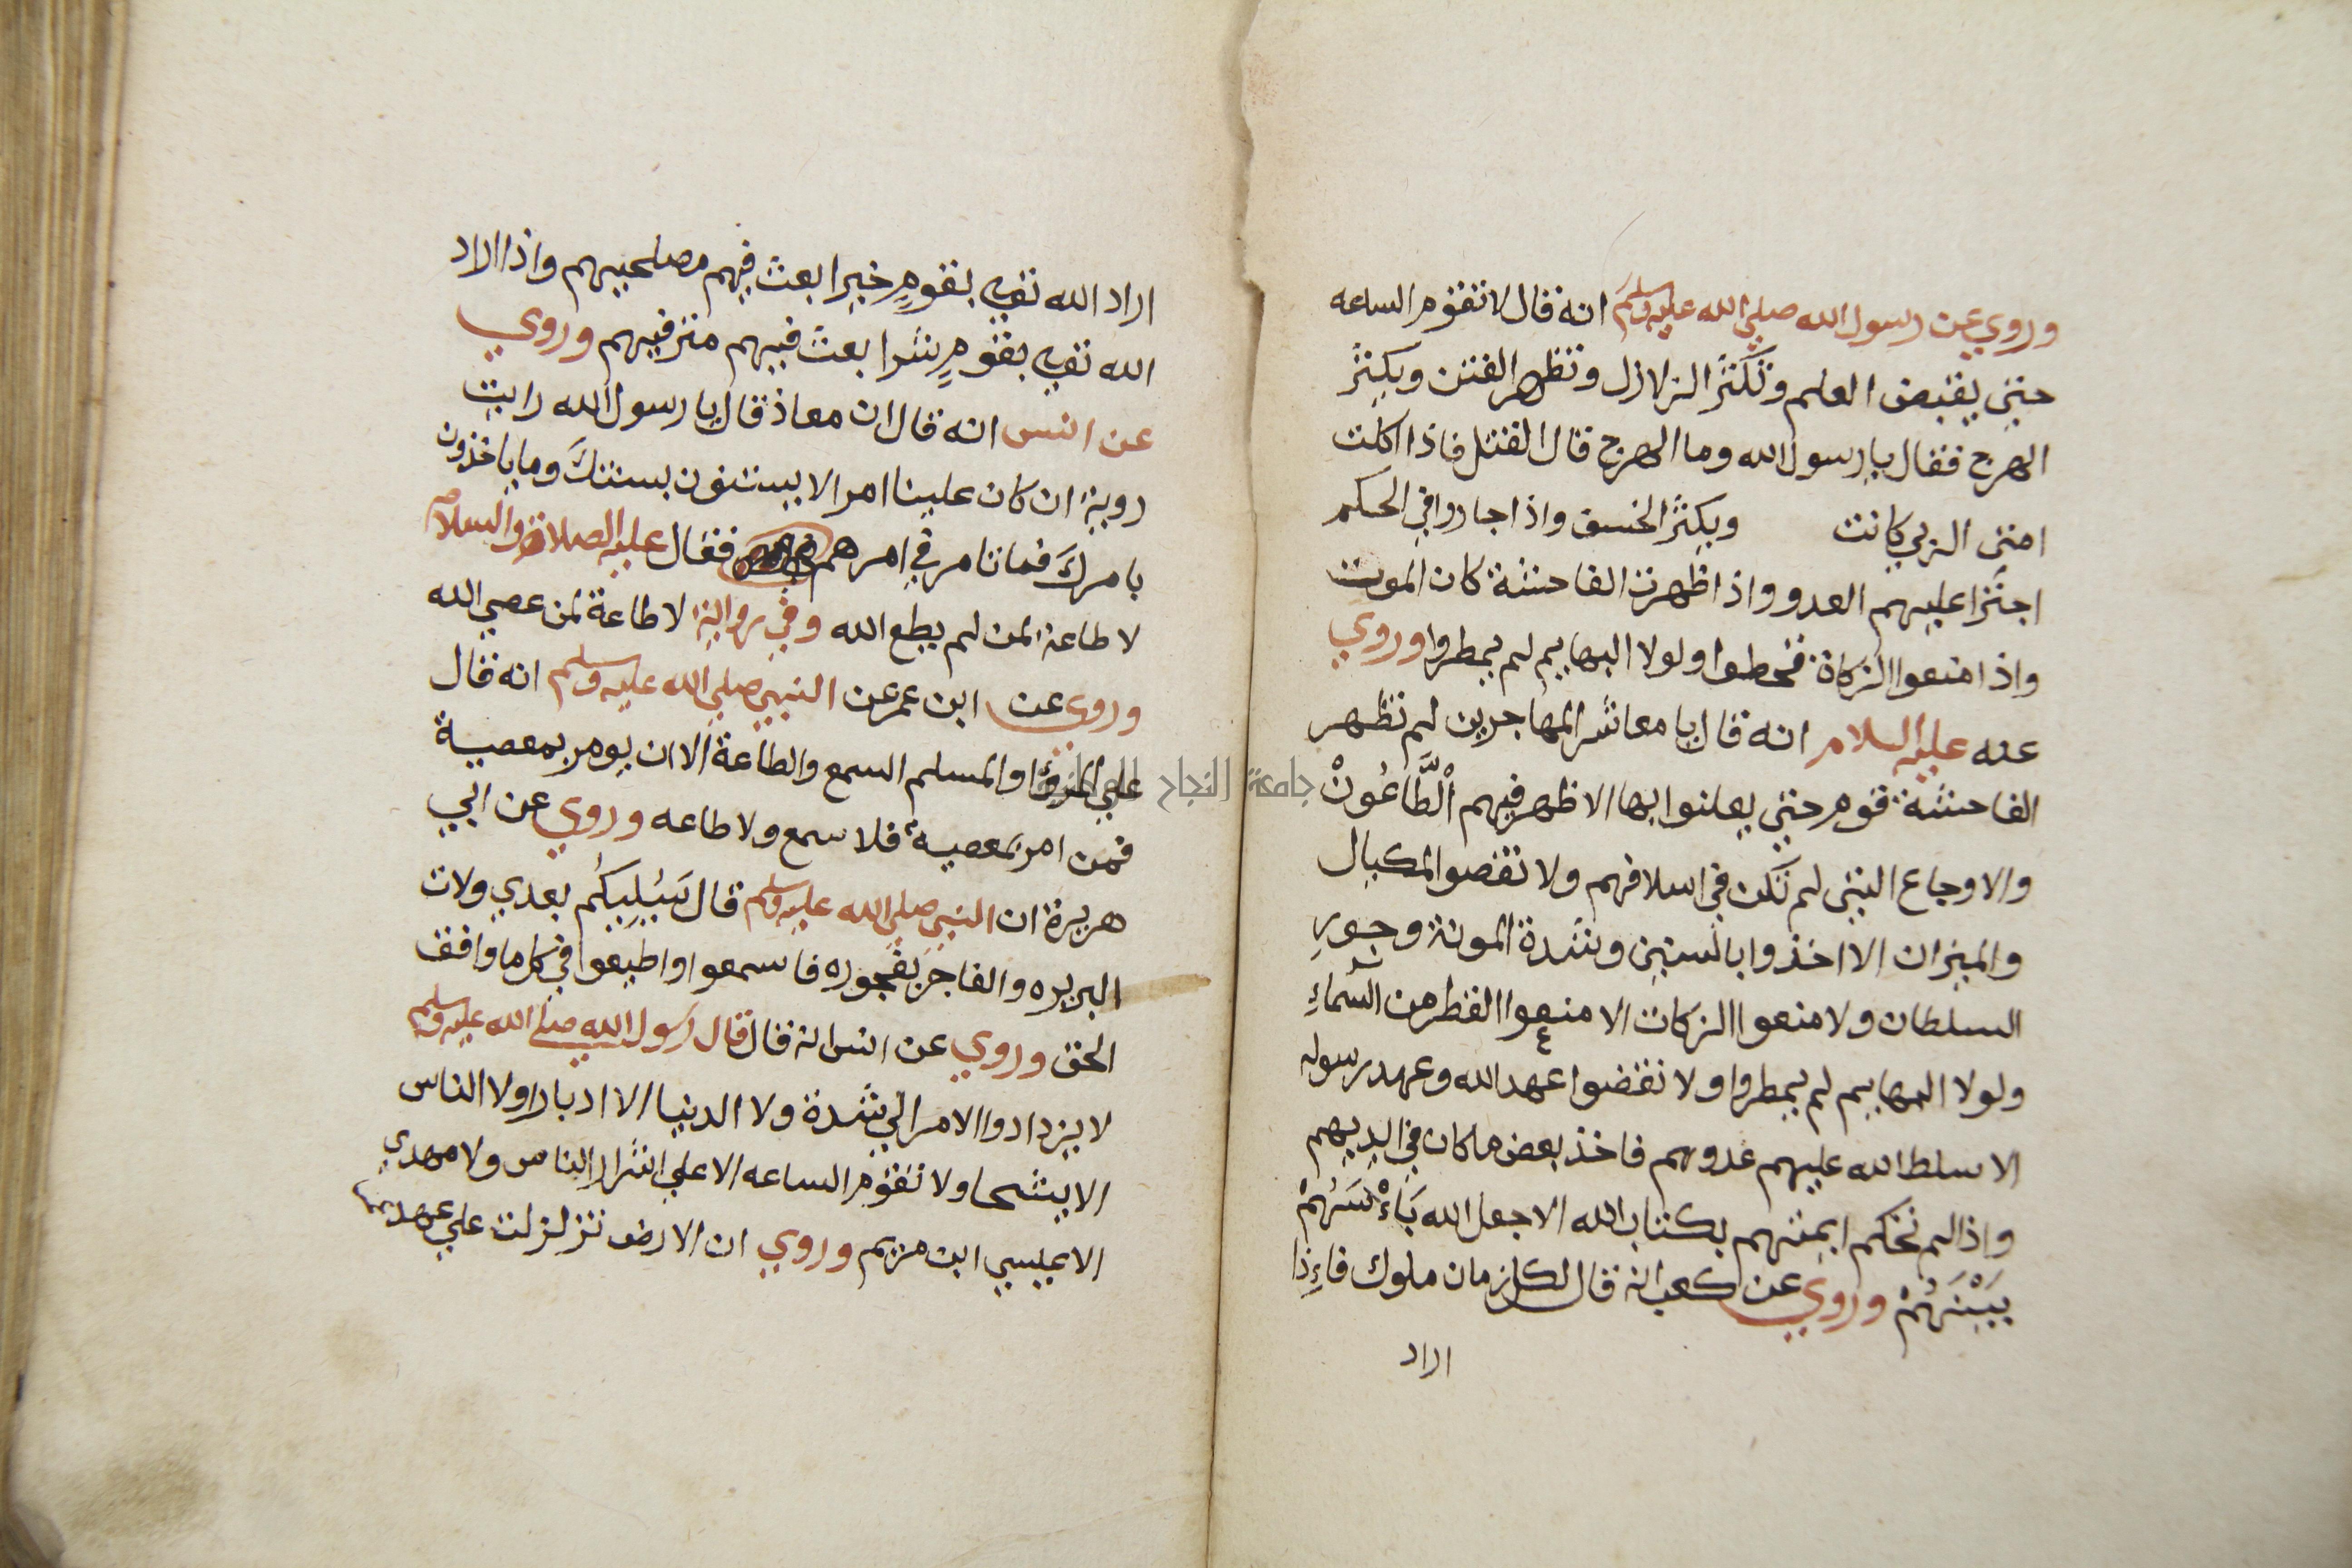 وروي عن رسول الله صلي الله عليه وسلم انه قال لا تقوم الساعه
حتي يقبض العلم وتكثر الزلازل وتظهر الفتن ويكثر
الهرج فقال يا رسول الله وما الهرج قال القتل فاذا اكلت
امتي الربي كانت ويكثر الخسف واذا جاروا في الحكم
اجترا عليهم العدو واذا ظهرت الفاحشة كان الموت
واذا منعوا الزكاة قحطوا ولولا البهايم لم يمطروا وروي
عنه عليه السلام انه قال يا معاشر المهاجرين لم تظهر
الفاحشة قوم حتي يعلنوا بها الا ظهر فيهم الْطَّاعُونْ
والاوجاع التي لم تكن في اسلافهم ولا نقصوا المكيال
والميزان الا اخذوا بالسنين وشدة المونة وجور
السلطان ولا منعوا الزكات الا منعوا القطر من السماءِ
ولولا البهايم لم يمطروا ولا نقضوا عهد الله وعهد رسوله
الا سلط الله عليهم عدوهم فاخذ بعض ما كان في ايديهم
واذا لم تحكم ايمتهم بكتاب الله الا جعل الله بَاءْسَهُمْ
بَيْنَهُمْ وروي عن كعب انه قال لكل زمان ملوك فاءِذا
اراد
اراد الله تعالي بقومٍ خيرا بعث فيهم مصلحيهم واذا اراد
الله تعالي بقومٍ شرا بعث فيهم مترفيهم وروي
عن انس انه قال ان معاذ قال يا رسول الله رايت
روية ان كان علينا امرا لا يستنون بسنتكَ وما ياخذون
بامركَ فما تامر في امرهم فقال عليه الصلاة والسلام
لا طاعة لمن لم يطع الله وفي رواية لا طاعة لمن عصي الله
وروي عن ابن عمر عن النبي صلي الله عليه وسلم انه قال
علي المرؤ والمسلم السمع والطاعة الا ان يومر بمعصية
فمن امر بمعصية فلا سمع ولا طاعه وروي عن ابي
هريرة ان النبي صلي الله عليه وسلم قال سَيُلِيكُم بعدي ولات
البر ببره والفاجر بفجوره فاسمعوا واطيعوا في كل ما وافق
الحق وروي عن انس انه قال قال رسول الله صلي الله عليه وسلم
لا يزدادوا الامر الي شدة ولا الدنيا الا ادبارا ولا الناس
الا يشحا ولا تقوم الساعه الا علي اشرار الناس ولا مهدي
الا عيسي ابن مريم وروي ان الارض تزلزلت علي عهد
جامعة النجاح الوطنية